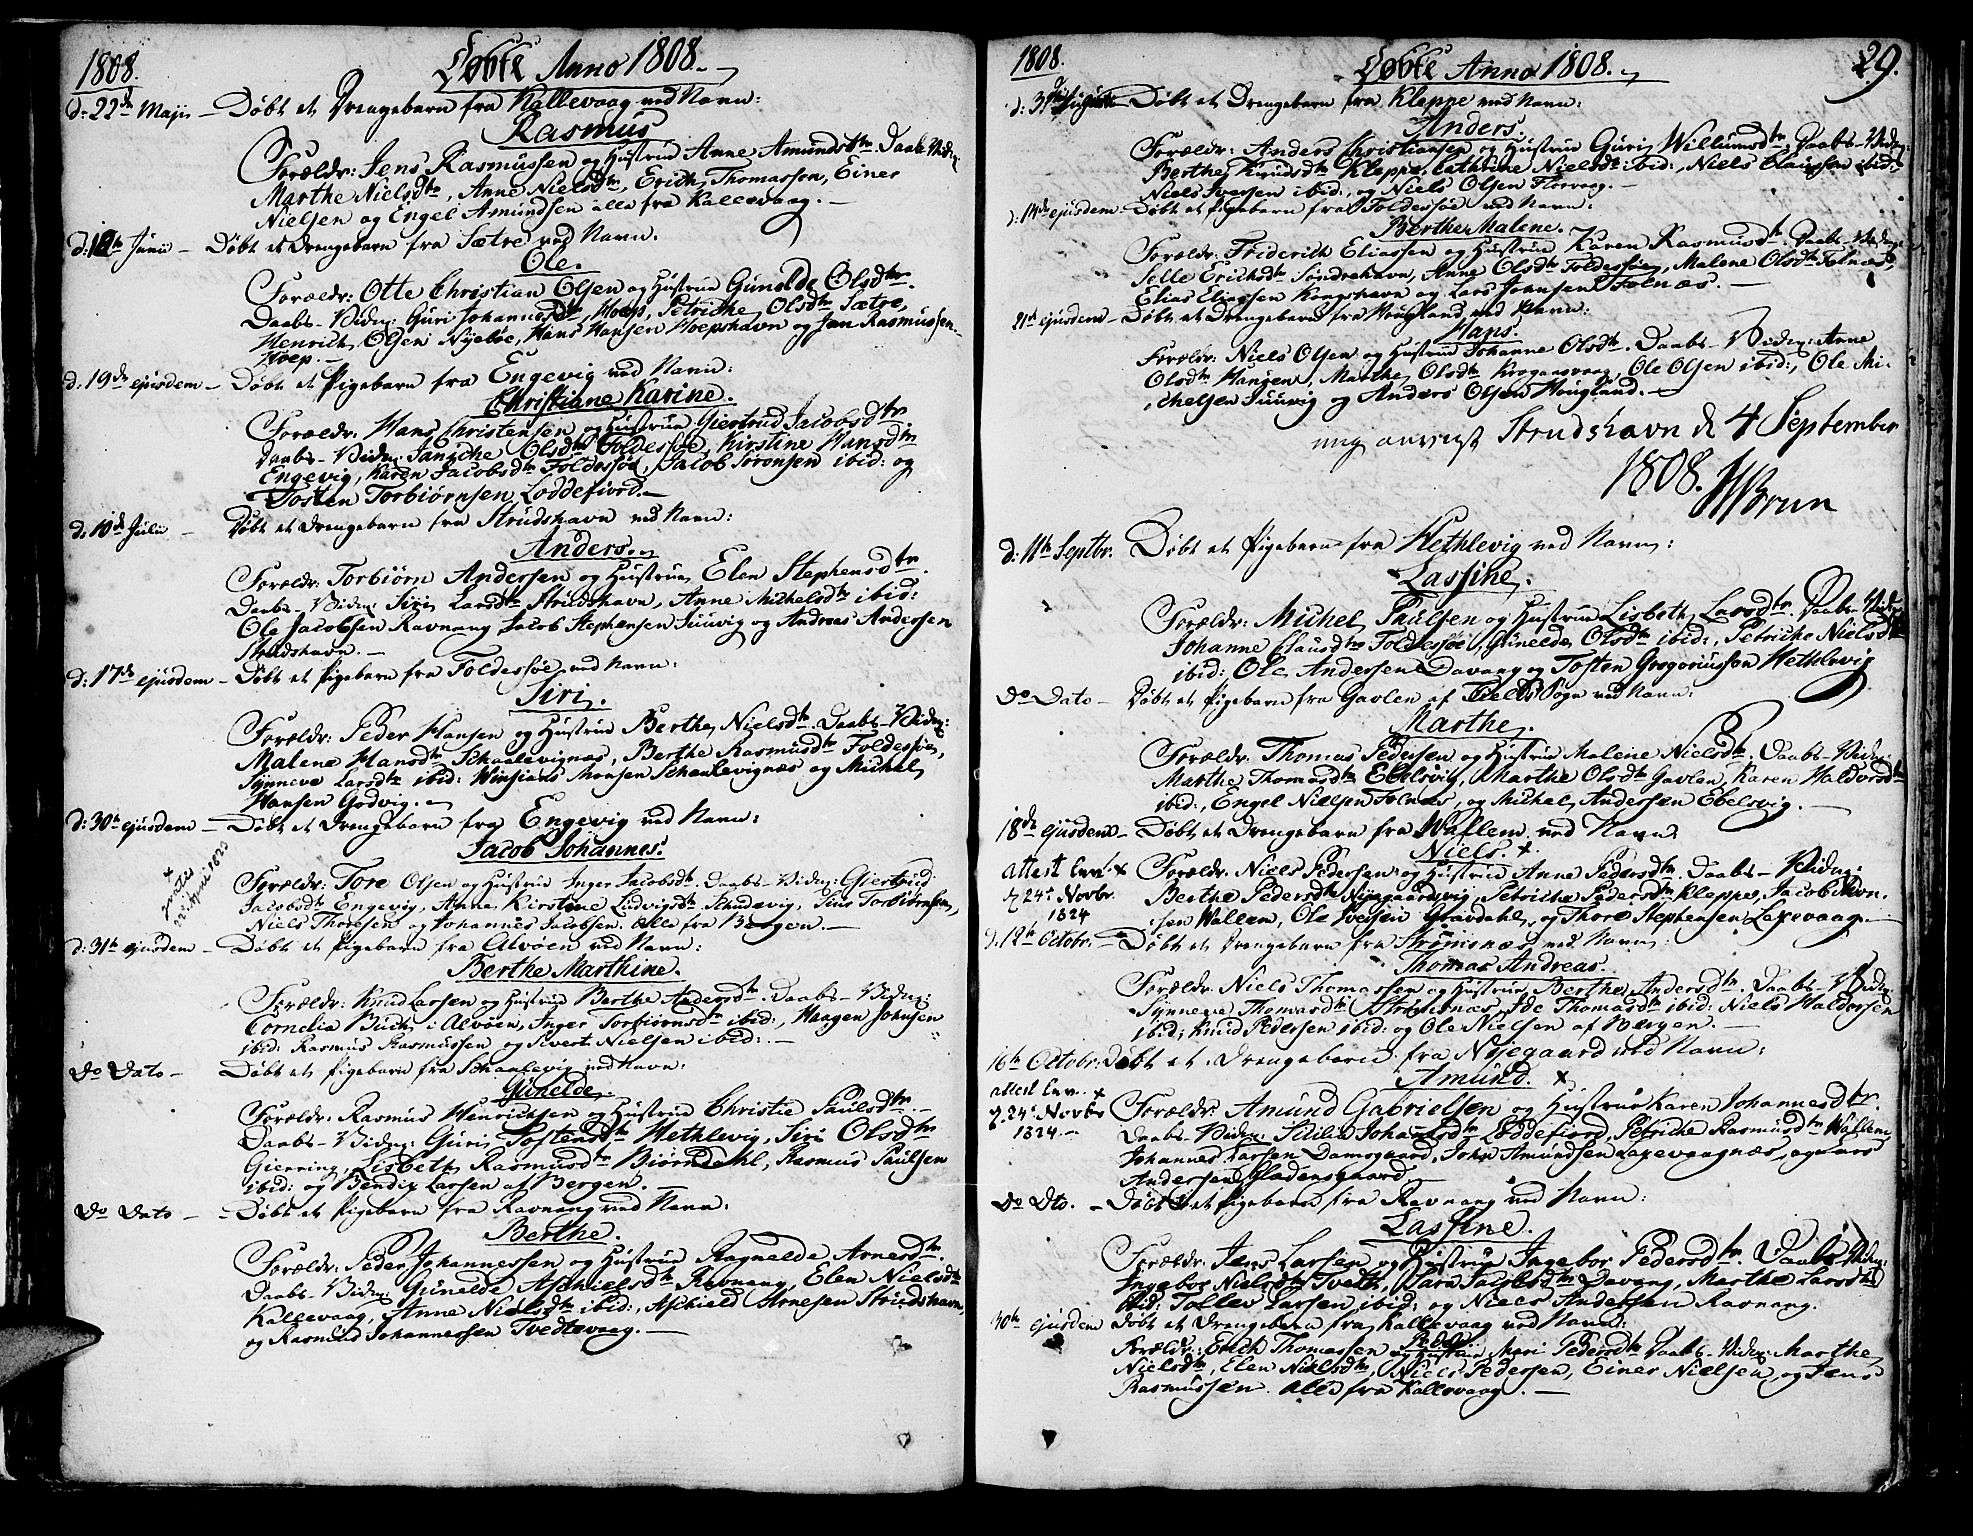 1808. Døbte Anno 1808.
d. 22de Maji – Døbt et Drengebarn fra Kallevaag ved Navn:
Rasmus
Forældr: Jens Rasmussen og Hustrue Anne Amundsdtr. Daabs-Vidn:
Marthe Nielsdtr, Anne Nielsdtr, Erich Thomassen, Einer
Nielsen og Engel Amundsen alle fra Kallevaag. –
d: 12te Junii – Døbt et Drengebarn fra Sætre ved Navn.
Ole.
Forældr: Otte Christian Olsen og Hustrue Gunelde Olsdtr.
Daabs-Vidn: Guri Johannesdtr, Hoep, Petriche Olsdtr Sætre,
Henrich Olsen Nyebøe, Hans Hansen Hoepshavn og Jan Rasmussen
Hoep. –
d. 19de ejusdem – Døbt et Pigebarn fra Engevig ved Navn:
Christiane Karine.
Forældr: Hans Christensen og Hustrue Giertrud Jacobsdtr
Daabs-Vidn: Saniche Olsdtr Foldessøe, Kirstine Hansdtr
Engevig, Karen Jacobsdtr Foldessøe, Jacob Sørensen ibid: og
Tosten Torbiørnsen Loddefiord. –
d: 10de Julii – Døbt et Drengebarn fra Strudshavn ved Navn:
Anders.
Forældr: Torbiørn Andersen og Hustrue Elen Stephensdtr.
Daabs-Vidn: Siri Larsdtr Strudshavn, Anne Michelsdtr ibid:
Ole Jacobsen Ravnang Jacob Stephensen Juuvig og Andreas Andersen
Strudshavn. –
d: 17de ejusdem – Døbt et Pigebarn fra Foldessøe ved Navn:
Siri.
Forældr: Peder Hansen og Hustrue Berthe Nielsdtr. Daabs-Vidn:
Malene Hansdtr Schaalevignæs, Berthe Rasmusdtr Foldessøe,
Synneve Larsdtr ibid: Monsen Schaalevignæs og Michel
Hansen Godvig. –
d: 30te ejusdem – Døbt et Drengebarn fra Engevig ved Navn:
Jacob Johannes.
22 April 1823
Forældr: Tore Olsen og Hustrue Inger Jacobsdtr. Daabs-Vidn: Giertrud
Jacobsdtr Engevig, Anne Kirstine Ludvigsdtr Strudevig, Jens Torbiørnsen,
Niels Thoresen og Johannes Jacobsen. Alle fra Bergen. –
d: 31te ejusdem – Døbt et Pigebarn fra Alvøen ved Navn:
Berthe Marthine.
Forældr: Knud Larsen og Hustrue Berthe Andersdtr. Daabs-Vidn:
Cornelia Buch i Alvøen, Inger Torbiørnsdtr ibid:, Haagen Johnsen
ibid: Rasmus Rasmussen og Sivert Nielsen ibid: –
Do Dato – Døbt et Pigebarn fra Schaalevig ved Navn:
Gunelde.
Forældr: Rasmus Henrichsen og Hustrue Christie Paulsdtr.
Daabs-Vidn: Guri Tostensdtr Hethlevig, Siri Olsdtr
Gierning, Lisbeth Rasmusdtr Biørndahl, Rasmus Paulsen
ibid: og Bendix Larsen af Bergen. –
Do Dato – Døbt et Pigebarn fra Ravnang ved Navn:
Berthe.
Forældr: Peder Johannessen og Hustrue Ragnelde Arnesdtr
Daabs-Vidn: Gunelde Aschielsdtr Ravnang, Elen Nielsdtr
Kallevaag, Anne Nielsdtr ibid:, Aschield Arnesen Strudshavn,
og Rasmus Johannessen Tvedtevaag. –
1808. Døbte Anno 1808. 29.
d: 31te Døbt et Drengebarn fra Kleppe ved Navn:
Anders.
Forældr: Anders Christiansen og Hustrue Guri Willumsdtr. Daabs-Vidn:
Berthe Knudsdtr Kleppe, Cathrine Nielsdtr ibid:, Niels Clausen ibid:,
Niels Iversen ibid:, og Niels Olsen Florvaag. –
d: 14de ejusdem – Døbt et Pigebarn fra Foldessøe ved Navn:
Berthe Malene.
Forældr: Friderich Eliassen og Hustrue Karen Rasmusdtr. Daabs-Vidn:
Sille Erichsdtr Søndrehavn, Anne Olsdtr Foldessøe, Malene Olsdtr Folnæs,
Elias Eliassen Kongshavn og Lars Johnsen Folnæs. –
21te ejusdem – Døbt et Drengebarn fra Hougland ved Navn:
Hans.
Forældr: Niels Olsen og Hustrue Johanne Olsdtr. Daabs-Vidn: Anne
Olsdtr Hansen, Marthe Olsdtr Krogansvaag, Ole Olsen ibid:, Ole Mi-
chelsen Juuvig og Anders Olsen Hougland. –
Strudshavn d: 4 September
1808. Brun
d: 11te Septbr. Døbt et Pigebarn fra Hethlevig ved Navn:
Lassine.
Forældr: Michel Paulsen og Hustrue Lisbeth Larsdtr. Daabs-Vidn:
Johanne Clausdtr Foldessøe, Gunelde Olsdtr ibid:, Petriche Nielsdtr
ibid: Ole Andersen Davang og Tosten Gregoriussen Hethlevig
Do Dato – Døbt et Pigebarn fra Gavlen af Fields Sogn ved Navn:
Marthe.
Forældr: Thomas Pedersen og Hustrue Malene Nielsdtr. Daabs-Vidn:
Marthe Thomasdtr Ebelsvig, Marthe Olsdtr Gavlen, Karen Haldorsdtr
ibid:, Engel Nielsen Folnæs, og Michel Andersen Ebelsvig. –
18de ejusdem – Døbt et Drengebarn fra Wallem ved Navn:
Niels. ×
attest × Forældr: Niels Pedersen og Hustrue Anne Pedersdtr. Daabs-Vidn:
24. Novbr. Berthe Pedersdtr Nyegaardsvig, Petriche Pedersdtr Kleppe, Jacob Han-
1824 sen Wallem, Ole Iversen Gravdahl, og Thore Stephensen Laxevaag.
d. 12te Octobr. – Døbt et Drengebarn fra Strømsnæs ved Navn:
Thomas Andreas.
Forældr: Niels Thomassen og Hustrue Berthe Andersdtr. Daabs-Vidn:
Synneva Thomasdtr Strømsnæs, Ide Thomasdtr ibid: Niels Haldorsen
ibid:, Knud Pedersen ibid: og Ole Nielsen af Bergen. –
16te Octobr: Døbt et Drengebarn fra Nyegaard ved Navn:
Amund. ×
attest ×
24. Novbr Forældr: Amund Gabrielsen og Hustrue Karen Johannesdtr.
1824. – Daabs-Vidn: Sitilie Johansdtr Loddefiord, Petriche Rasmusdtr Wallem
Johannes Larsen Damsgaard, John Amundsen Laxevaagnæs, og Lars
Andersen Gladensgaard. –
Do Dto. – Døbt et Pigebarn fra Ravnang ved Navn:
Lassine.
Forældr: Jens Larsen og Hustrue Ingebor Pedersdtr. Daabs-Vidn:
Ingebor Nielsdtr Tvedt, Sara Davang, Marthe Larsdtr
ibid: Tollev Larsen ibid: og Niels Andersen Ravnang.
30te ejusdem Døbt et Drengebarn fra Kallevaag ved Navn:
Peder
Forældr: Erich Thomassen og Hustrue Mari Pedersdtr Daabs-Vidn: Marthe
Nielsdtr, Elen Nielsdtr, Niels Pedersen, Einer Nielsen og Jens
Rasmussen. Alle fra Kallevaag. –